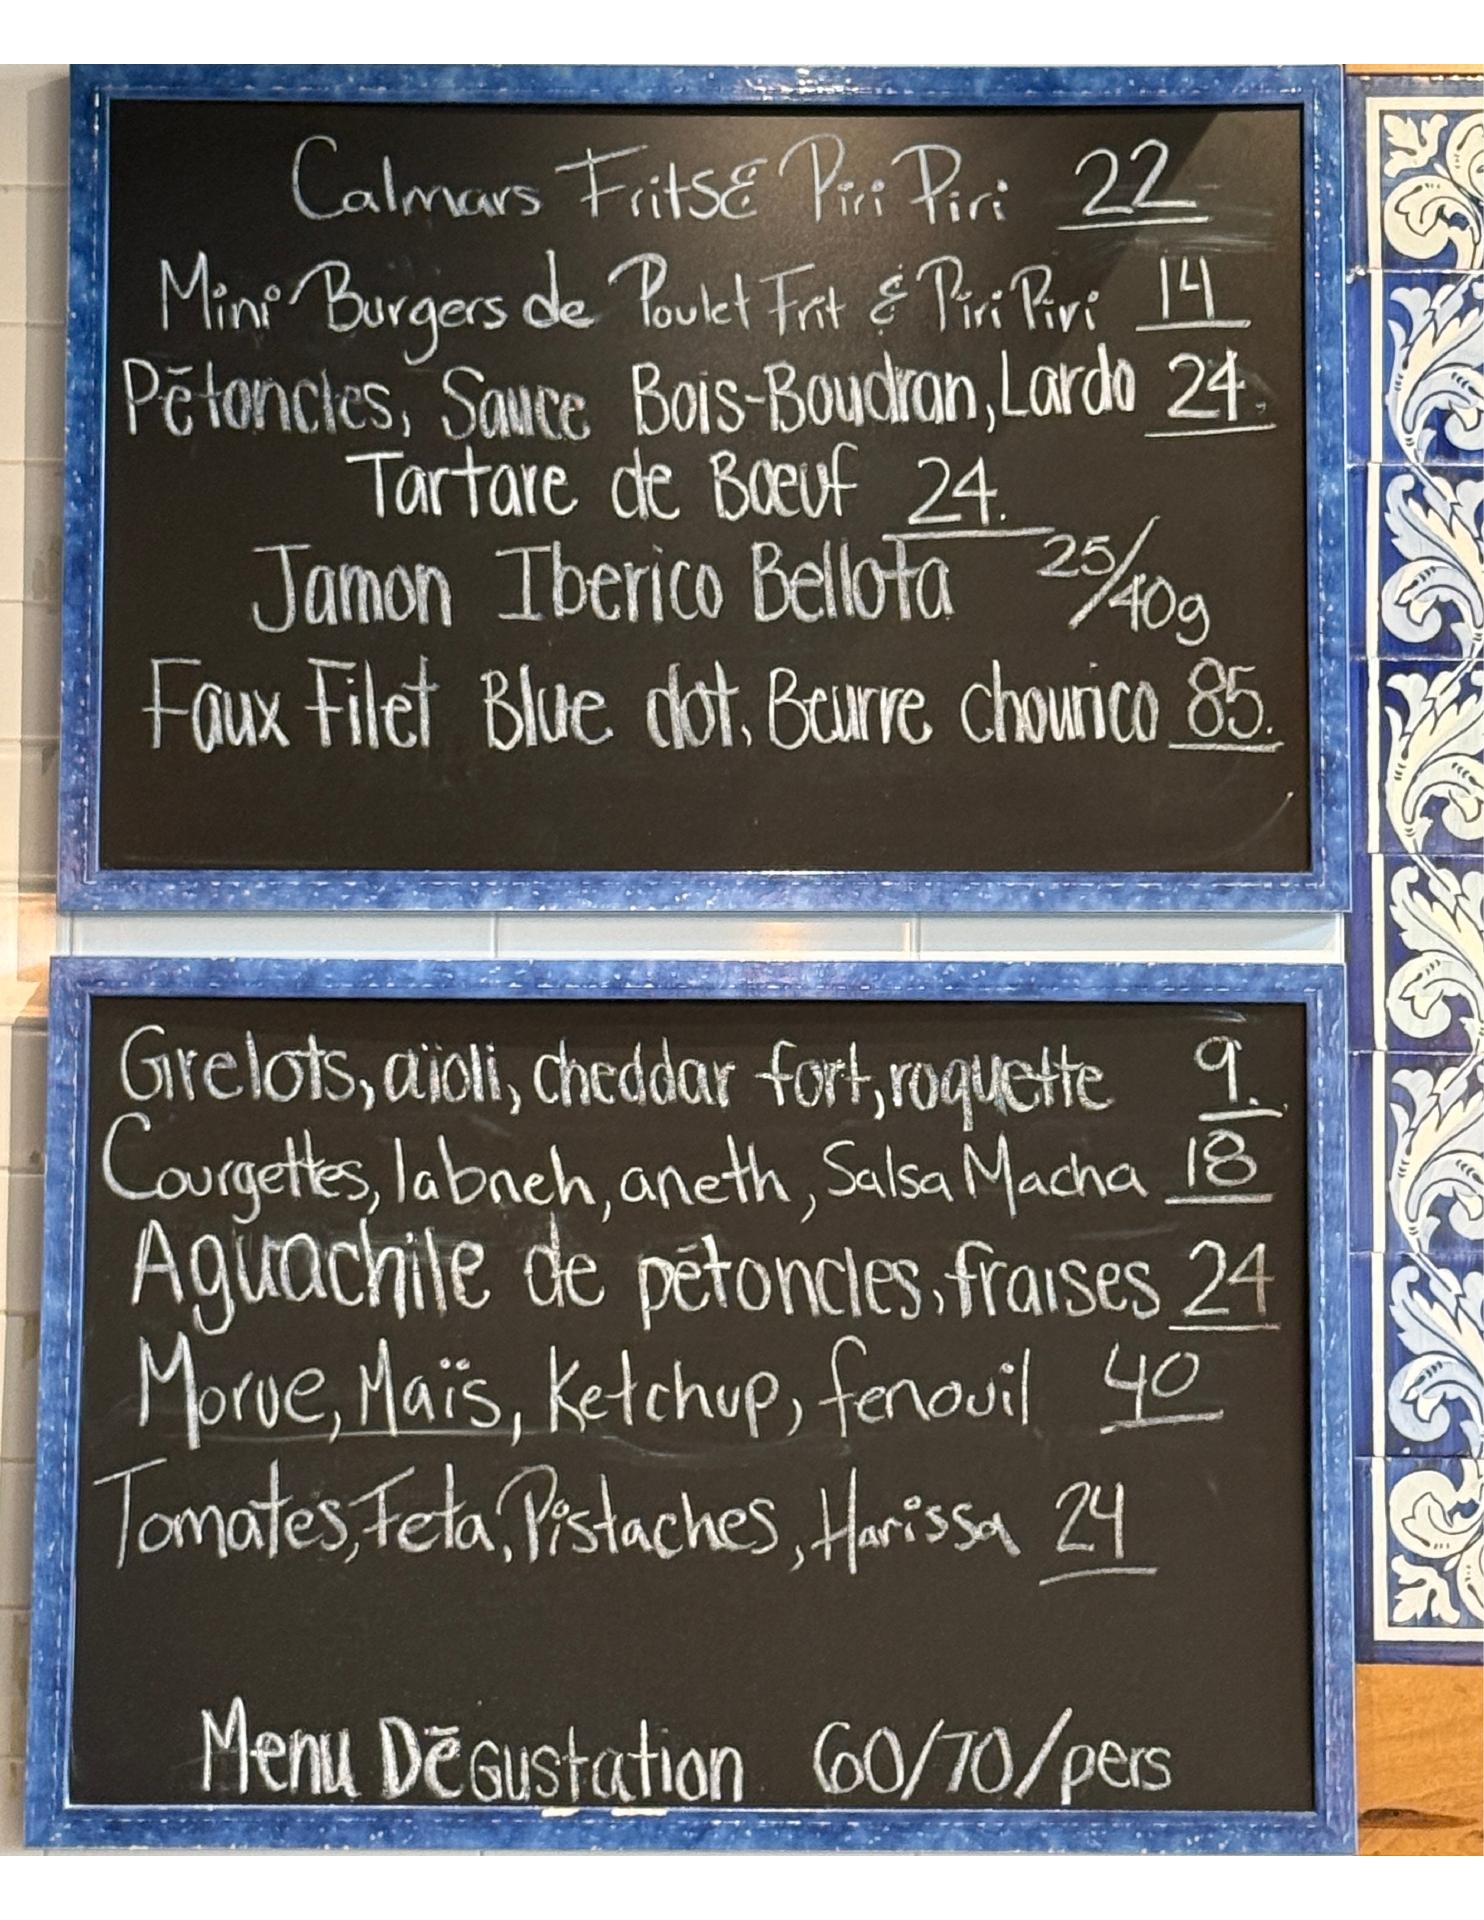 Calmars Frits & Piri Piri 22
Mini Burgers de Poulet Frit & Piri Piri 14
Pētoncles, Sauce Bois-Boudran, Lardo 24.
Tartare de Bœuf 24.
Jamon Iberico Bellota 25/40g
Faux Filet Blue dot, Beurre chourico 85.
Grelots, aïoli, cheddar fort, roquette 9.
Courgettes, labneh, aneth, Salsa Macha 18
Aguachile de pētoncles, fraises 24
Morue, Maïs, Ketchup, fenouil 40
Tomates, Feta, Pistaches, Harissa 24
Menu Dēgustation 60/70/pers